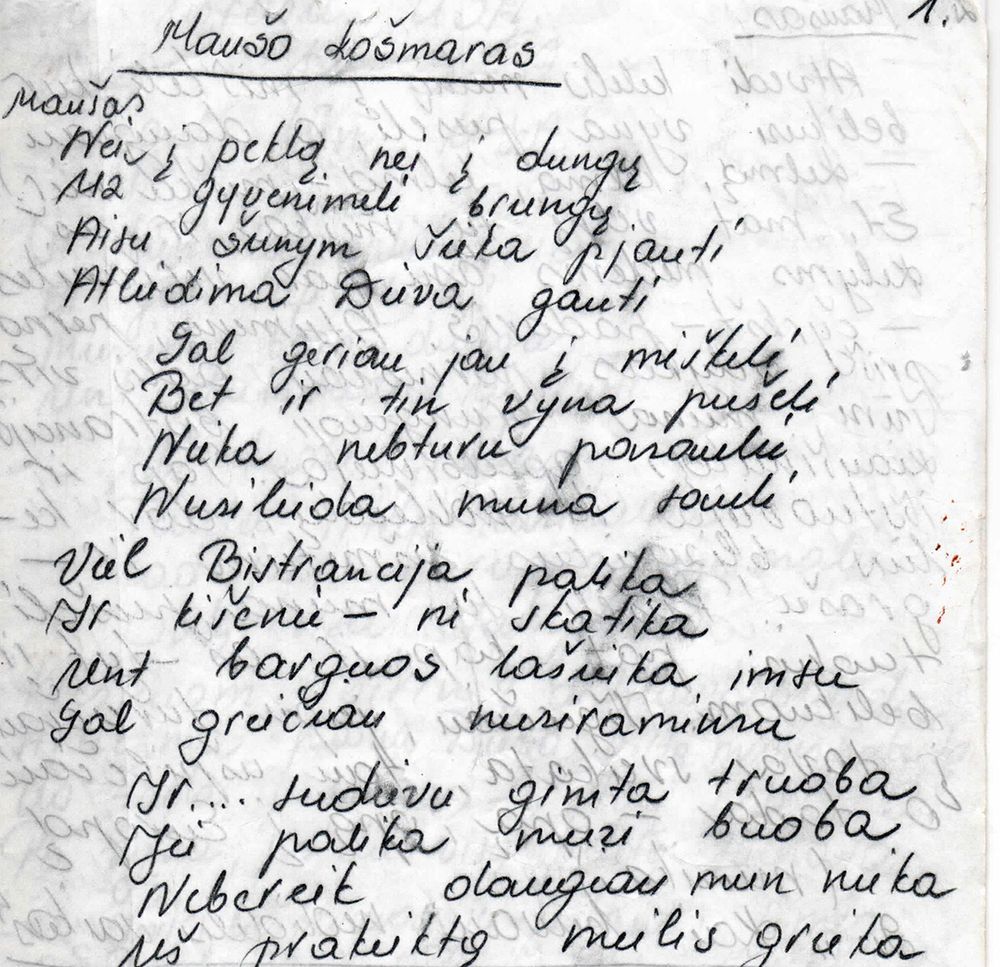 1.
Maušo košmaras
Maušas
Nei į peklą nei į dungų
Už gyvenimeli brungų
Aisu šunym šieka pjauti
Atleidima Dieva gauti
Gal geriau jau į miškelį
Bet ir tin vyna pušelį
Nieka nebturu pasauliė
Nusileida muna sauli
Viel Bistrancija palika
Ir kišenie – ni skatika
Unt barguos lašieika imsu
Gal greičiau nusiraminsu
Ir.... sudievu gimta truoba
Jei palika muzi buoba
Nebereik daugiau mun nieka
Už prakeiktą meilis grieka